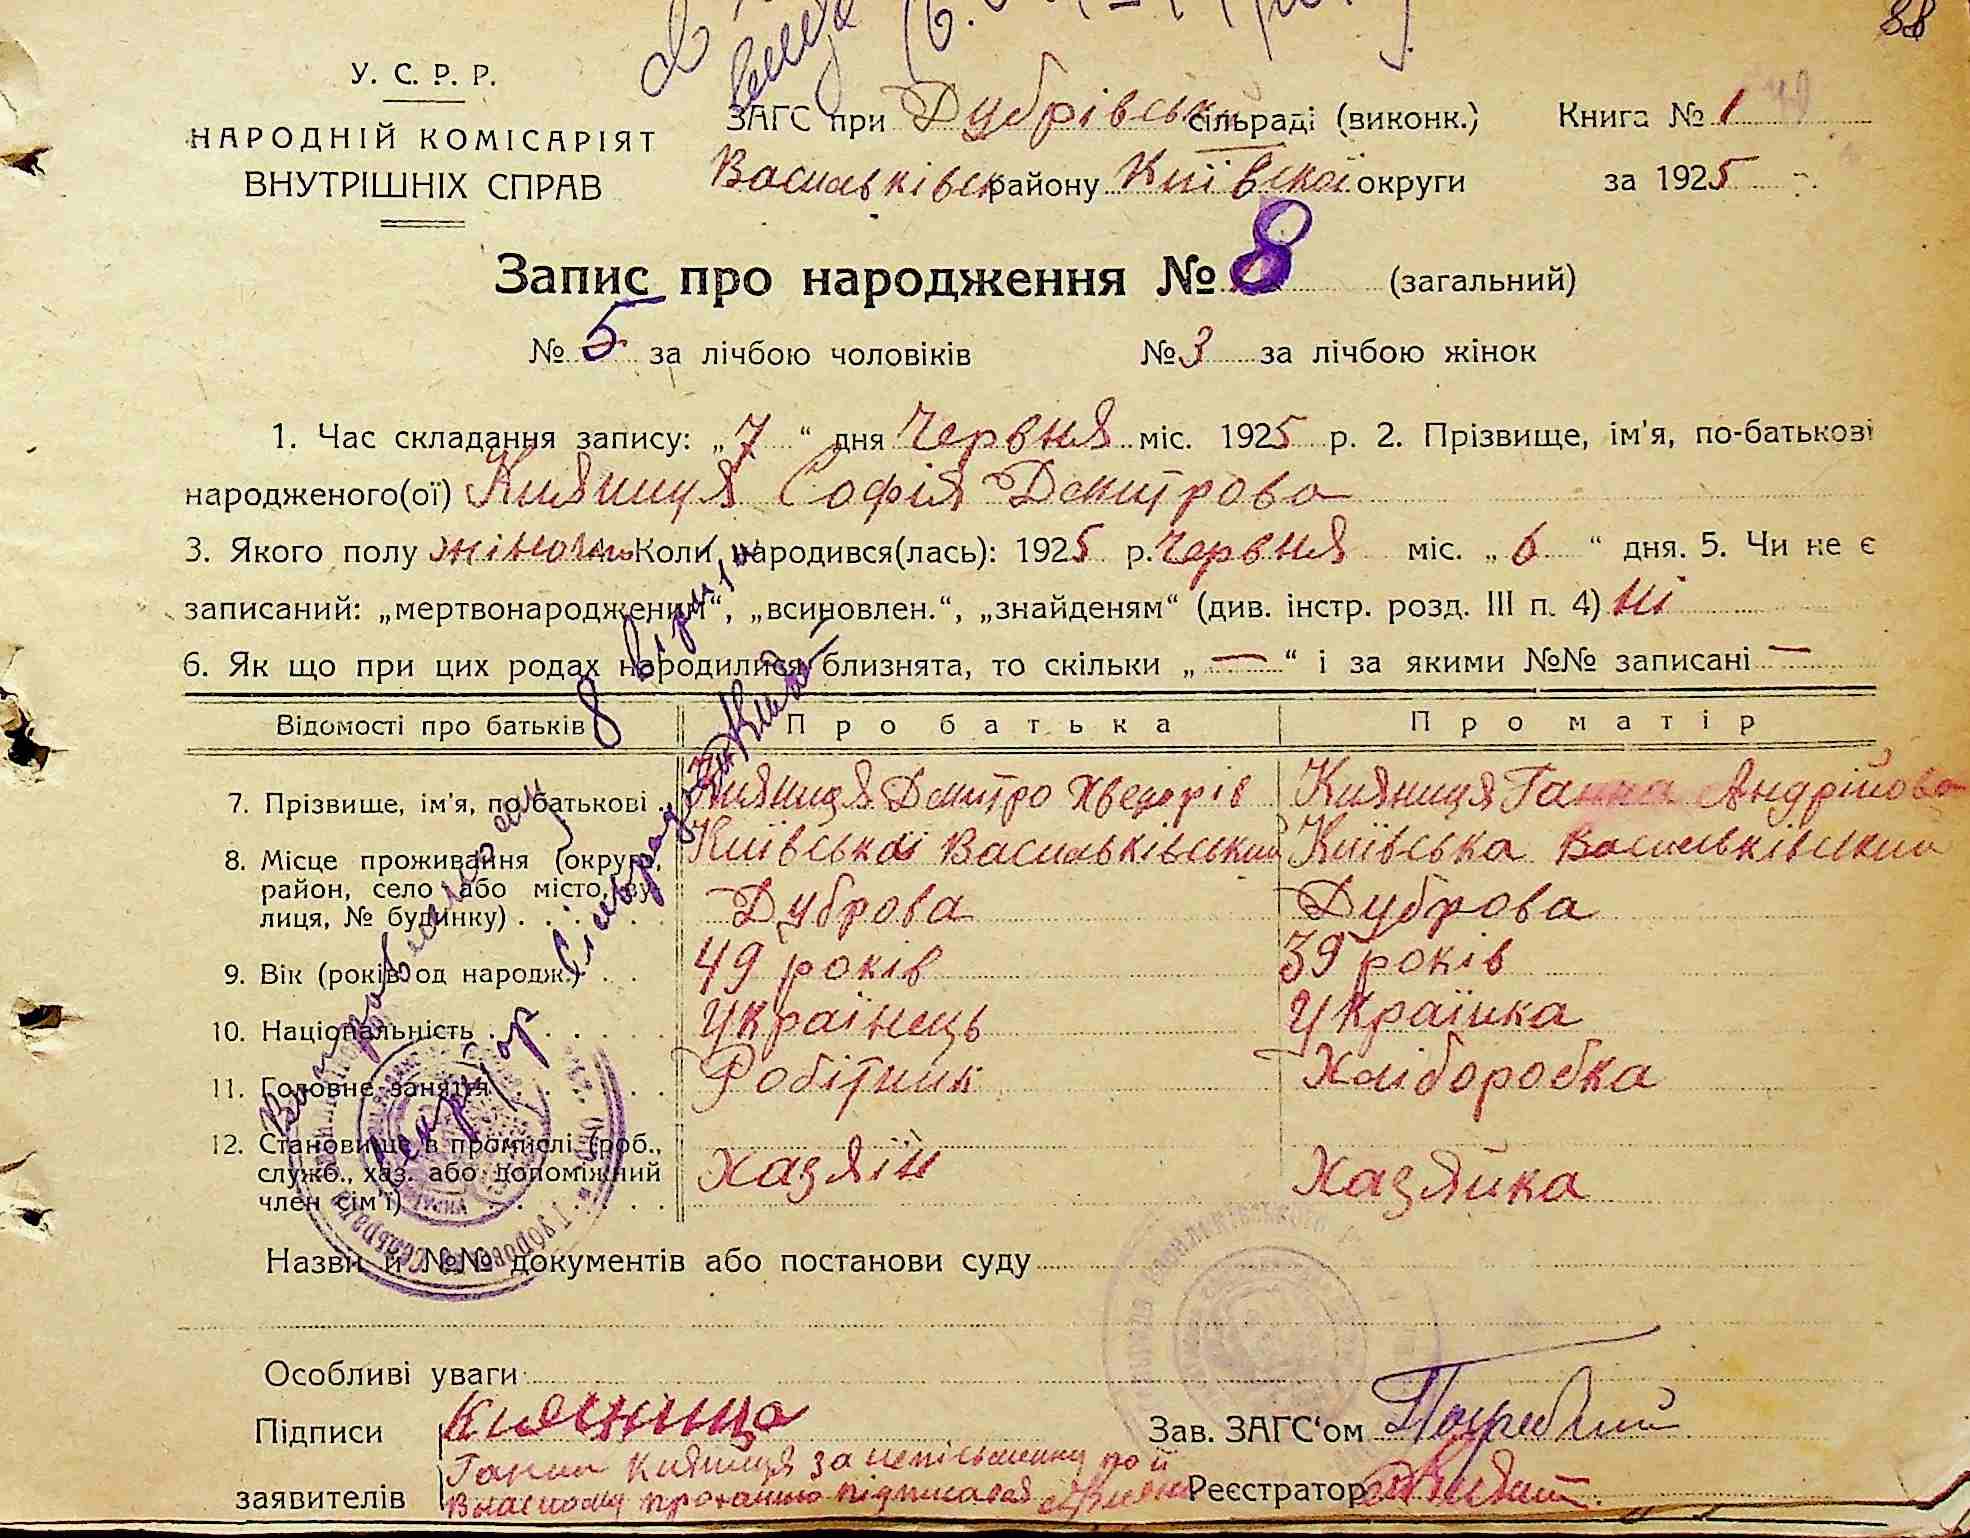 88
У. С. Р. Р.
НАРОДНІЙ КОМІСАРІЯТ
ВНУТРІШНІХ СПРАВ
ЗАГС при Дубрівськ сільраді (виконк.) Книга № 1
Васильківськ району Київської округи за 1925
Запис про народження № 8 (загальний)
№ 5 за лічбою чоловіків № 3 за лічбою жінок
1. Час складання запису: „7“ дня Червня міс. 1925 р. 2. Прізвище, ім'я, по-батькові
народженого(ої) Кияниця Софія Дмитрова
3. Якого полу жіноч 4. Коли народився(лась): 1925 р. Червня міс. „6“ дня. 5. Чи не є
записаний: „мертвонародженим“, „всиновлен.“, „знайденям“ (див. інстр. розд. III п. 4) Ні
6. Як що при цих родах народилися близнята, то скільки „—“ і за якими №№ записані —
Відомості про батьків Про батька Про матір
7. Прізвище, ім'я, по батькові Кияниця Дмитро Хведорів Кияниця Ганна Андрійова
8. Місце проживання (округа, Київської Васильківський Київська Васильківський
район, село або місто, ву-
лиця, № будинку) Дуброва Дуброва
9. Вік (років од народж.) 49 років 39 років
10. Національність Українець Українка
11. Головне заняття Робітник Хліборобка
12. Становище в промислі (роб.,
служб., хаз. або допоміжний
член сім'ї) Хазяїн Хазяйка
8 вірно
Сільради
Секр
Назви й №№ документів або постанови суду
Особливі уваги
Підписи Кияниця
Зав. ЗАГС'ом Погребний
Ганни Кияниця за неписьменну по її
заявителів власному проханню підписався
Реєстратор